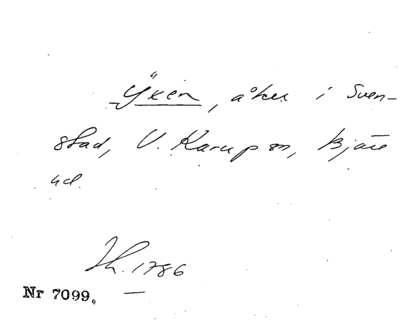 Yxen, åker i Sven-
stad, V. Karup sn, Bjäre
hd.
Th. 1786
Nr 7099.